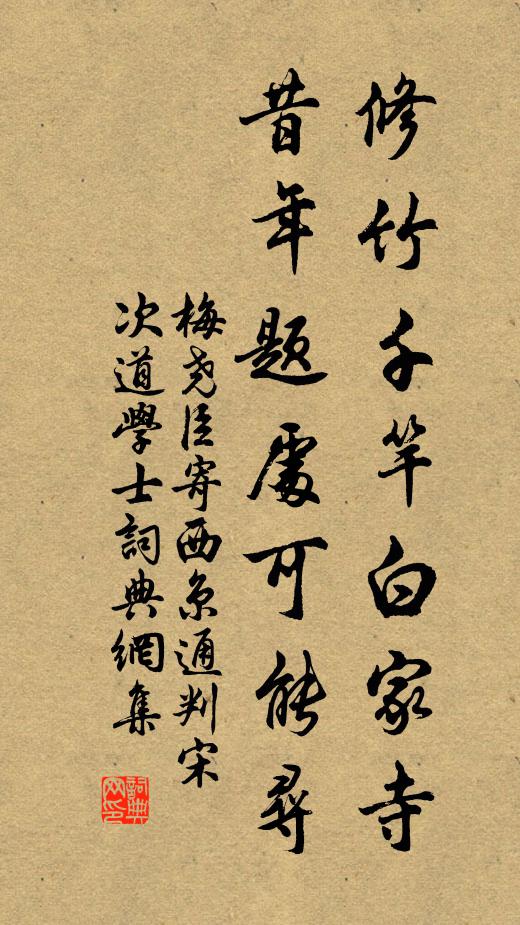 修竹千竿白家寺
昔年題處可能尋
梅堯臣寄西京通判宋
次道學士詞典網集
詞典網印